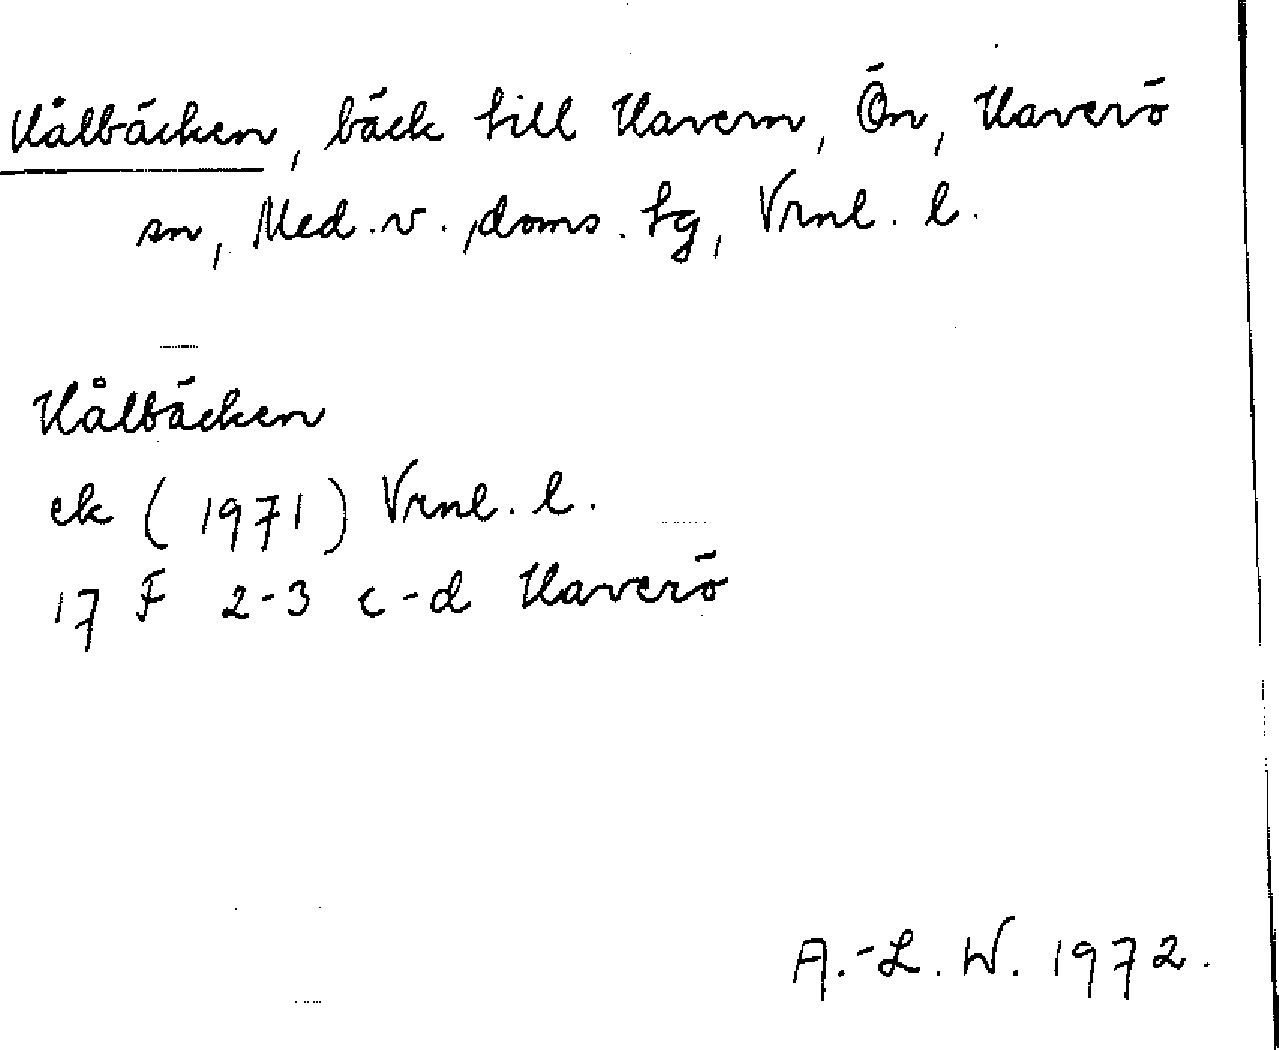 Hålbäcken, bäck till Havern, Ön, Haverö
sn, Med. v. doms. tg, Vrnl. l.
Hålbäcken
ek (1971) Vrnl. l.
17 F 2-3 c-d Haverö
A.-L. W. 1972.